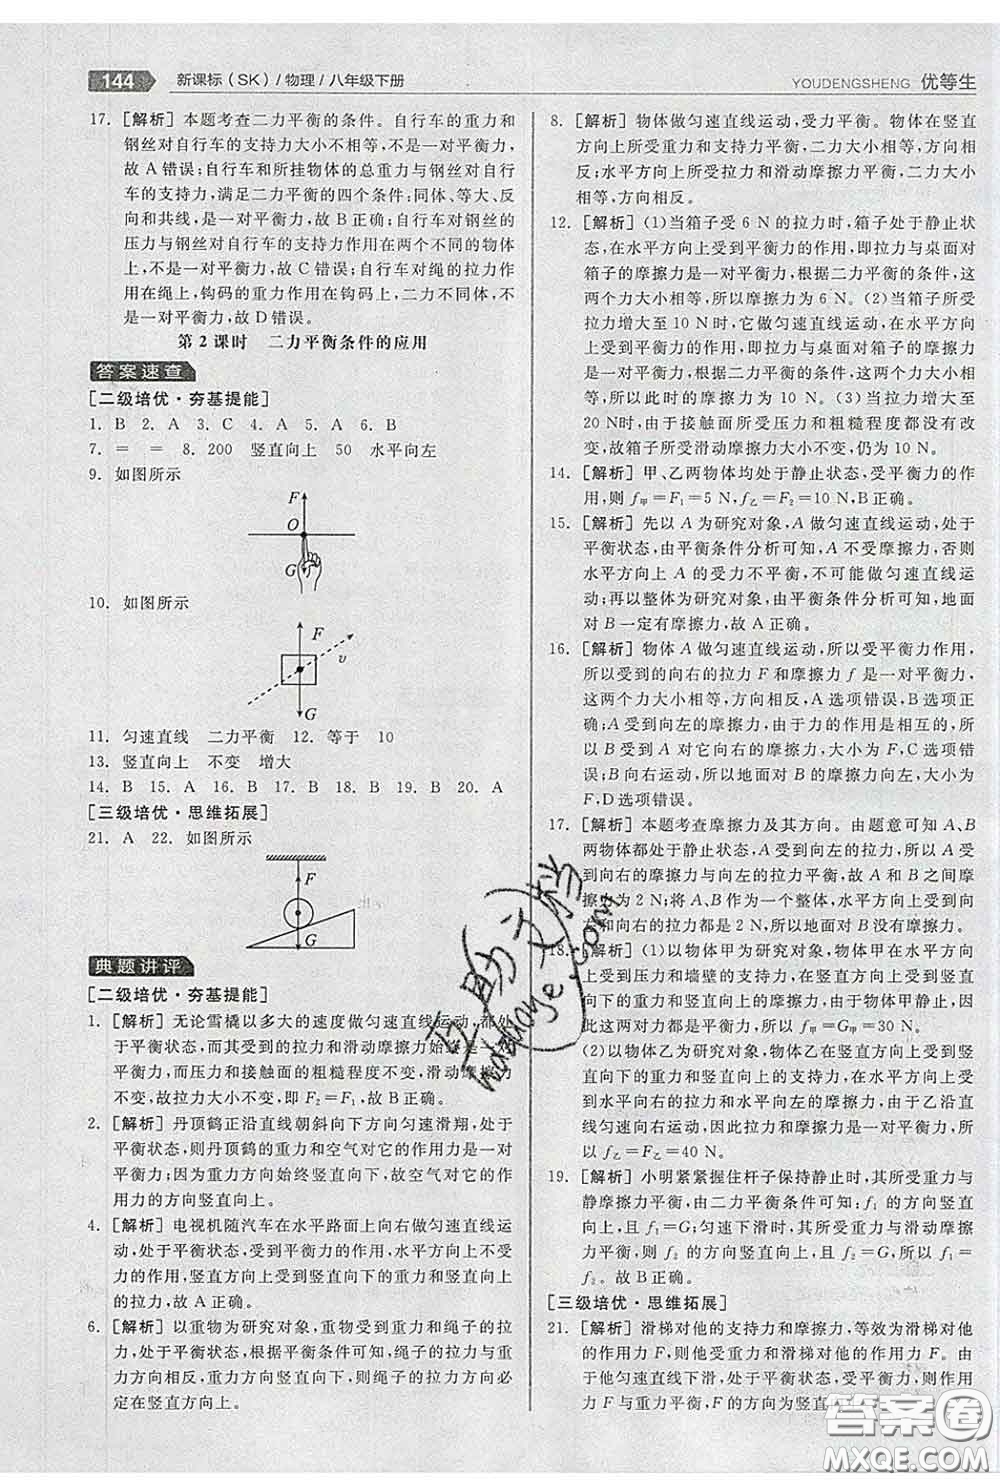 144 新课标（SK）/物理/八年级下册
YOUDENGSHENG 优等生
17. [解析] 本题考查二力平衡的条件。自行车的重力和
钢丝对自行车的支持力大小不相等,不是一对平衡力,
故 A 错误;自行车和所挂物体的总重力与钢丝对自行
车的支持力,满足二力平衡的四个条件:同体、等大、反
向和共线,是一对平衡力,故 B 正确;自行车对钢丝的
压力与钢丝对自行车的支持力作用在两个不同的物体
上,不是一对平衡力,故 C 错误;自行车对绳的拉力作
用在绳上,钩码的重力作用在钩码上,二力不同体,不是
一对平衡力,故 D 错误。
第 2 课时 二力平衡条件的应用
答案速查
[二级培优·夯基提能]
1. B 2. A 3. C 4. A 5. A 6. B
7. = = 8. 200 竖直向上 50 水平向左
9. 如图所示
F
O
G
10. 如图所示
F
v
G
11. 匀速直线 二力平衡 12. 等于 10
13. 竖直向上 不变 增大
14. B 15. A 16. B 17. B 18. B 19. B 20. A
[三级培优·思维拓展]
21. A 22. 如图所示
F
G
典题讲评
[二级培优·夯基提能]
1. [解析] 无论雪橇以多大的速度做匀速直线运动,都处
于平衡状态,而其受到的拉力和滑动摩擦力始终是一对
平衡力;因为压力和接触面的粗糙程度不变,滑动摩擦力
不变,故拉力大小不变,即 F₂=F₁,故 B 正确。
2. [解析] 丹顶鹤正沿直线朝斜向下方向匀速滑翔,处于
平衡状态,则丹顶鹤的重力和空气对它的作用力是一对
平衡力;因为重力方向始终竖直向下,故空气对它的作
用力的方向竖直向上。
4. [解析] 电视机随汽车在水平路面上向右做匀速直线运
动,处于平衡状态,受到平衡力的作用,水平方向上不受
力的作用,竖直方向上受到竖直向下的重力和竖直向上
的拉力,故 A 正确。
6. [解析] 以重物为研究对象,重物受到重力和绳子的拉
力,处于平衡状态,根据平衡条件可知,绳子的拉力与重
力方向相反,重力方向竖直向下,则绳子的拉力方向必
定在竖直方向上。
8. [解析] 物体做匀速直线运动,受力平衡。物体在竖直
方向上所受重力和支持力平衡,二力大小相等,方向相
反;水平方向上所受拉力和滑动摩擦力平衡,二力大小
相等,方向相反。
12. [解析] (1)当箱子受 6 N 的拉力时,箱子处于静止状
态,在水平方向上受到平衡力的作用,即拉力与桌面对
箱子的摩擦力是一对平衡力,根据二力平衡的条件,这
两个力大小相等,所以摩擦力为 6 N。(2)当箱子所受
拉力增大至 10 N 时,它做匀速直线运动,在水平方向
上受到平衡力的作用,即拉力与桌面对箱子的摩擦力
是一对平衡力,根据二力平衡的条件,这两个力大小相
等,所以此时的摩擦力为 10 N。(3)当拉力增大至
20 N时,由于接触面所受压力和粗糙程度都没有改
变,故箱子所受滑动摩擦力大小不变,仍为 10 N。
14. [解析] 甲、乙两物体均处于静止状态,受平衡力的作
用,则 f甲=F₁=5 N,f乙=F₂=10 N,B正确。
15. [解析] 先以 A 为研究对象,A 做匀速直线运动,处于
平衡状态,由平衡条件分析可知,A 不受摩擦力,否则
水平方向上 A 的受力不平衡,不可能做匀速直线运
动;再以整体为研究对象,由平衡条件分析可知,地面
对 B 一定有摩擦力,故 A 正确。
16. [解析] 物体 A 做匀速直线运动,所以受平衡力作用,
所以受到的向右的拉力 F 和摩擦力 f 是一对平衡力,
这两个力大小相等,方向相反,A 选项错误,B 选项正
确;A 受到向左的摩擦力,由于力的作用是相互的,所
以 B 受到 A 对它向右的摩擦力等于 F,C 选项错
误;B 向右运动,所以地面对 B 的摩擦力向左,大于
F,D 选项错误。
17. [解析] 本题考查摩擦力及其方向。由题意可知 A、B
两物体都处于静止状态,A 受到向左的拉力与受到向
右的摩擦力是一对平衡力,故 A 和 B 之间的摩擦力
为 2 N;将 A、B 两个物体看作一个整体,水平方向上向
左和向右的拉力都是 2 N,所以地面对 B 没有摩擦力。
18. [解析] (1)以物体甲为研究对象,物体甲在水平方向
上受到压力和墙壁的支持力,在竖直方向上受到竖直
向下的重力和竖直向上的摩擦力,由于物体甲静止,因
此这两对力都是平衡力,所以 f甲=G甲=30 N。
(2)以物体乙为研究对象,物体乙在竖直方向上受到竖
直向下的重力和竖直向上的支持力,在水平方向上受
到水平向右的拉力和水平向左的摩擦力,由于乙沿直
线匀速向右运动,因此拉力和摩擦力是一对平衡力,所
以 f乙=F乙=40 N。
19. [解析] 小明紧紧握住杆子保持静止时,其所受重力与
静摩擦力平衡,由二力平衡条件可知:f₁ 的方向竖直向
上,且 f₁=G;匀速下滑时,其所受重力与滑动摩擦力
平衡,则 f₂ 的方向竖直向上,且 f₂=G,所以 f₁=
f₂。故 B 正确。
[三级培优·思维拓展]
21. [解析] 滑梯对他的支持力和摩擦力,等效为滑梯对他
的作用力,则他受重力和滑梯对他的作用力作用,由
于他匀速直线下滑,处于平衡状态,受平衡力,则滑梯对
他的作用力 F 与重力大小相等,方向相反,故 A 正确。
互助文档
huzhuwendang.com
答案圈
MXQE.COM